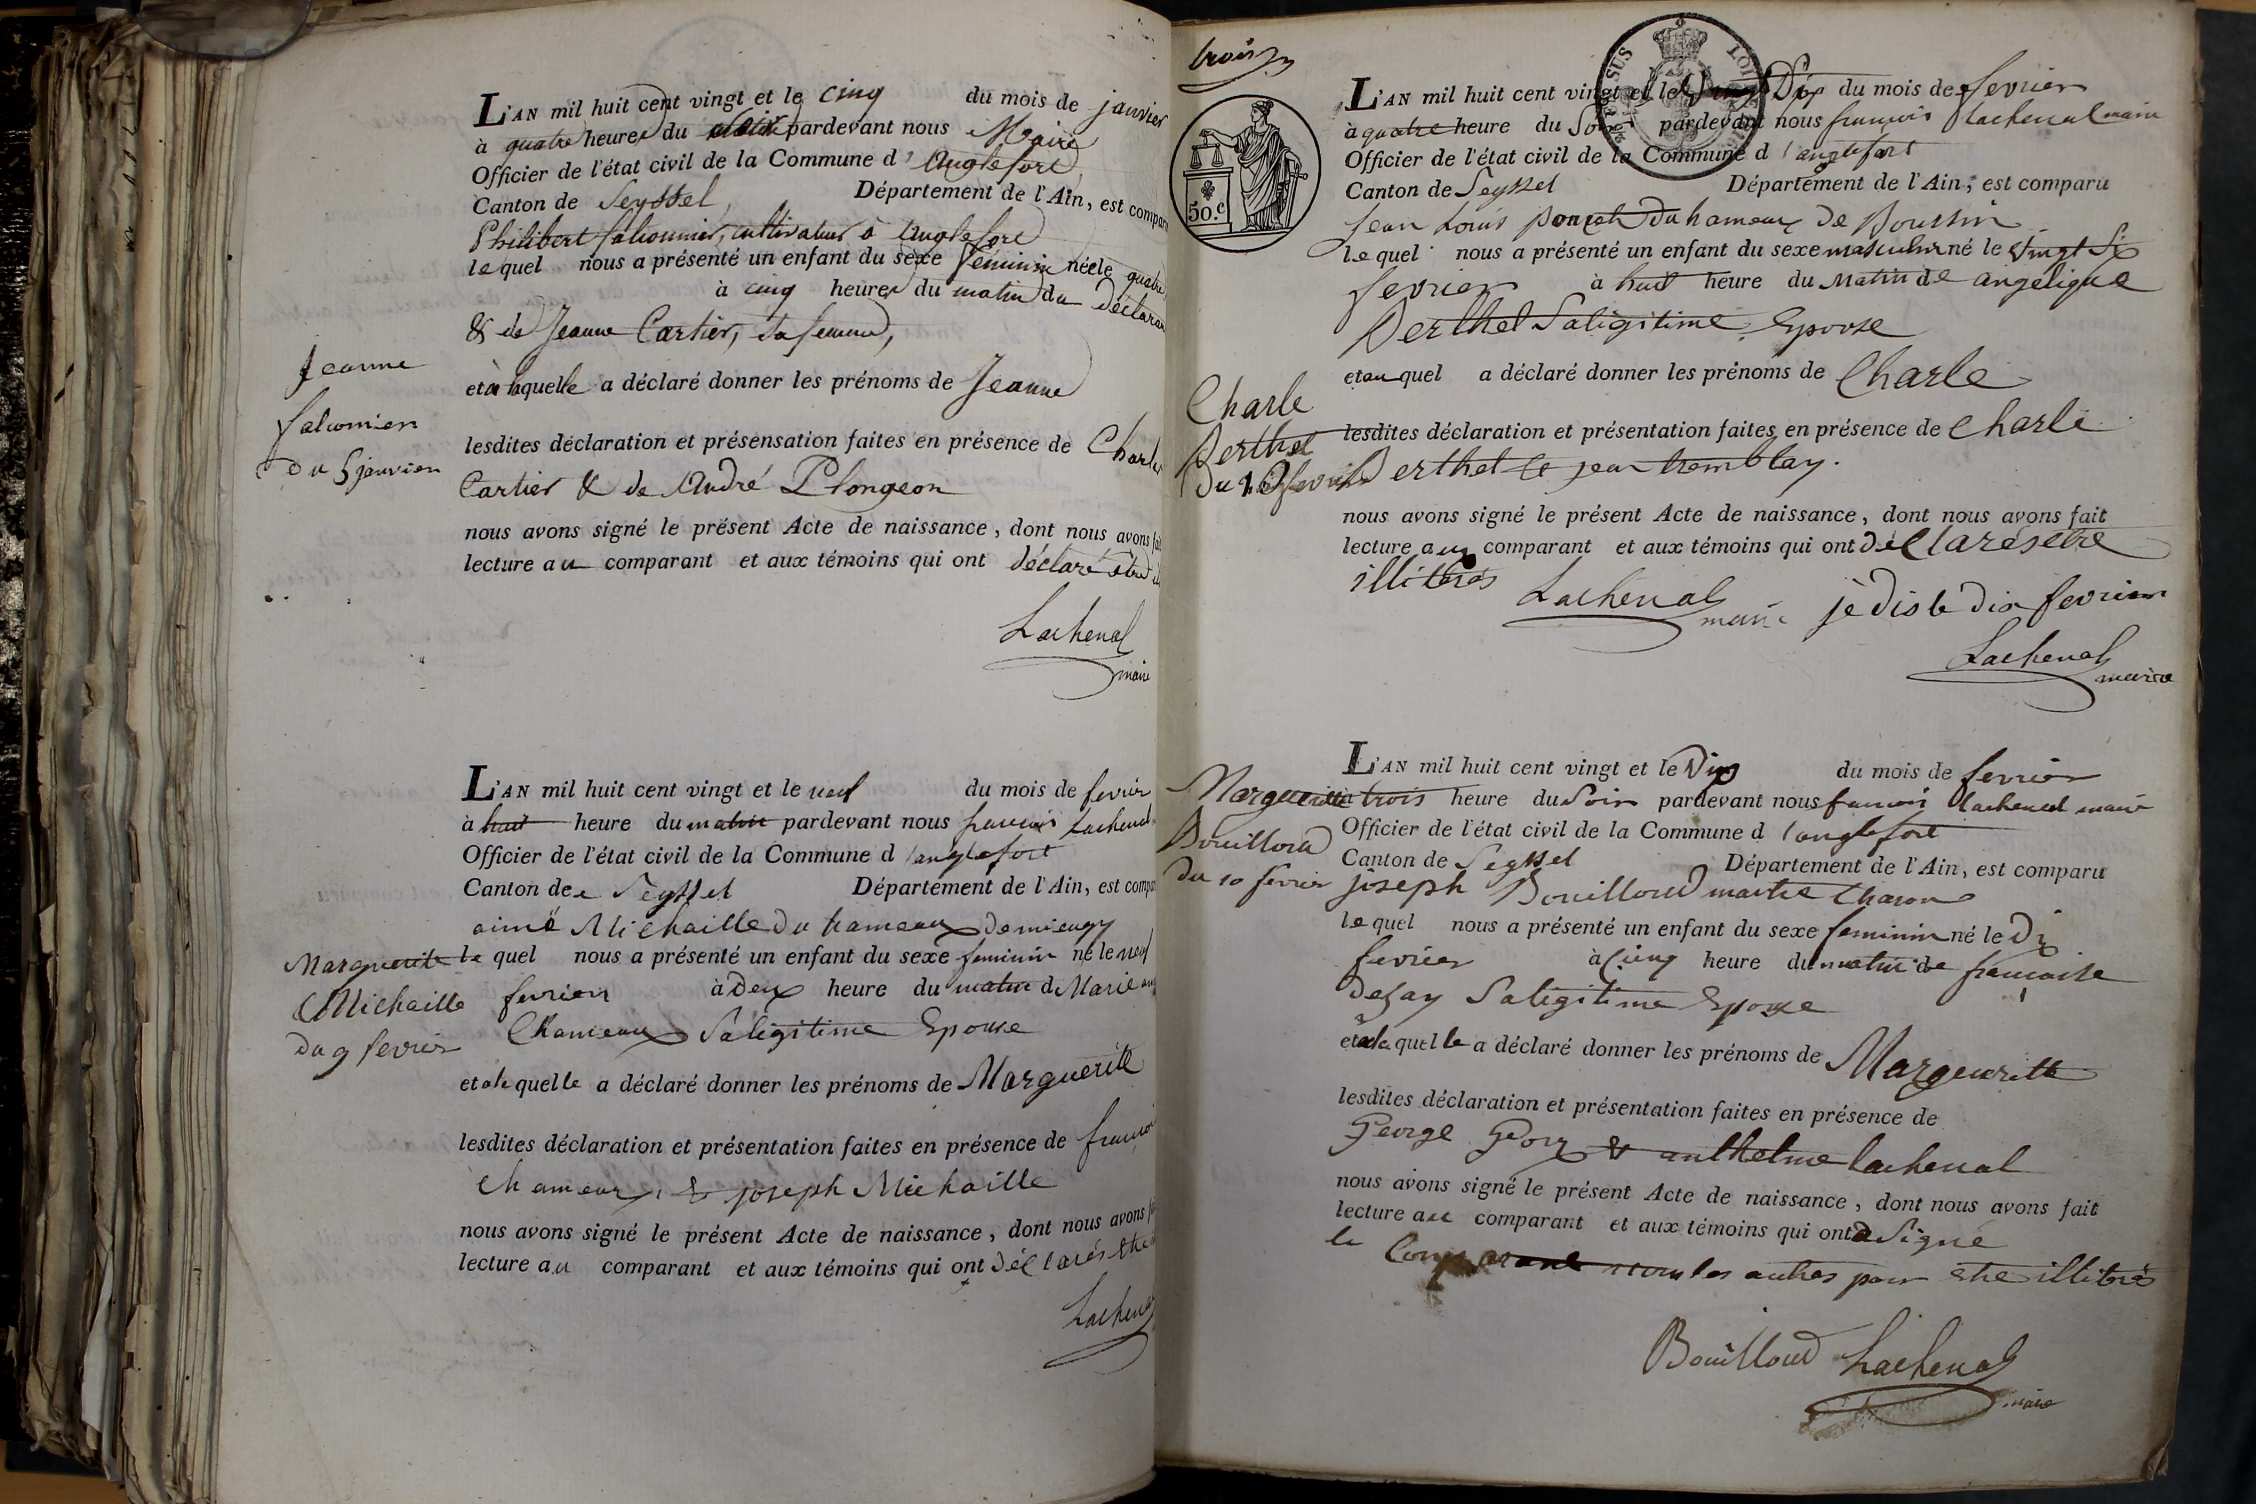 L'AN mil huit cent vingt et le cinq du mois de janvier
à quatre heures du pardevant nous Maire
Officier de l'état civil de la Commune d'Anglefort
Canton de Seyssel, Département de l'Ain, est comparu
Philibert falconnier, cultivateur à Anglefort
lequel nous a présenté un enfant du sexe féminin née le quatre
à cinq heures du matin du déclarant
& de Jeanne Cartier, sa femme,
Jeanne
falconnier
du 5 janvier
et à laquelle a déclaré donner les prénoms de Jeanne
lesdites déclaration et présensation faites en présence de Charles
Cartier & de André Plongeon
nous avons signé le présent Acte de naissance, dont nous avons fait
lecture au comparant et aux témoins qui ont déclaré être
Lachenal
maire
L'AN mil huit cent vingt et le neuf du mois de fevrier
à huit heure du matin pardevant nous francois lachenal
Officier de l'état civil de la Commune d'anglefort
Canton de Seyssel Département de l'Ain, est comparu
aimé Michaille du hameaux de mieugy
Marguerite
Michaille
du 9 fevrier
le quel nous a présenté un enfant du sexe feminin né le neuf
fevrier à Deux heure du matin d Marie
Chameaux Saligitime Epouse
et a la quelle a déclaré donner les prénoms de Marguerite
lesdites déclaration et présentation faites en présence de francois
chameaux & joseph Michaille
nous avons signé le présent Acte de naissance, dont nous avons
lecture au comparant et aux témoins qui ont déclarés
Lachenal
trois
50.c
L'AN mil huit cent vingt et le Dix du mois de fevrier
à quatre heure du Soir pardevant nous francois lachenal maire
Officier de l'état civil de la Commune d'anglefort
Canton de Seyssel Département de l'Ain, est comparu
Jean Louis poncet du hameaux de Boursin
le quel nous a présenté un enfant du sexe masculin né le
fevrier à huit heure du Matin de angelique
Berthet Saligitime Epouse
et au quel a déclaré donner les prénoms de Charle
Charle
Berthet
Du 10 fevrier
lesdites déclaration et présentation faites en présence de Charle
Berthet & jean tremblay.
nous avons signé le présent Acte de naissance, dont nous avons fait
lecture aux comparant et aux témoins qui ont déclarés etre
illitérés Lachenal maire je dis le dix fevrier
Lachenal
maire
L'AN mil huit cent vingt et le Dix du mois de fevrier
à trois heure du Soir pardevant nous francois lachenal maire
Officier de l'état civil de la Commune d'anglefort
Canton de Seyssel Département de l'Ain, est comparu
Marguerite
Bouilloud
du 10 fevrier
joseph Bouilloud maitre Charon
le quel nous a présenté un enfant du sexe feminin né le Dix
fevrier à Cinq heure du matin de francoise
Dezay Saligitime Epouse
et a la quelle a déclaré donner les prénoms de Margueritte
lesdites déclaration et présentation faites en présence de
George Gory & anthelme lachenal
nous avons signé le présent Acte de naissance, dont nous avons fait
lecture au comparant et aux témoins qui ont a Signé
le Comparant non les autres pour etre illitérés
Bouilloud Lachenal
maire